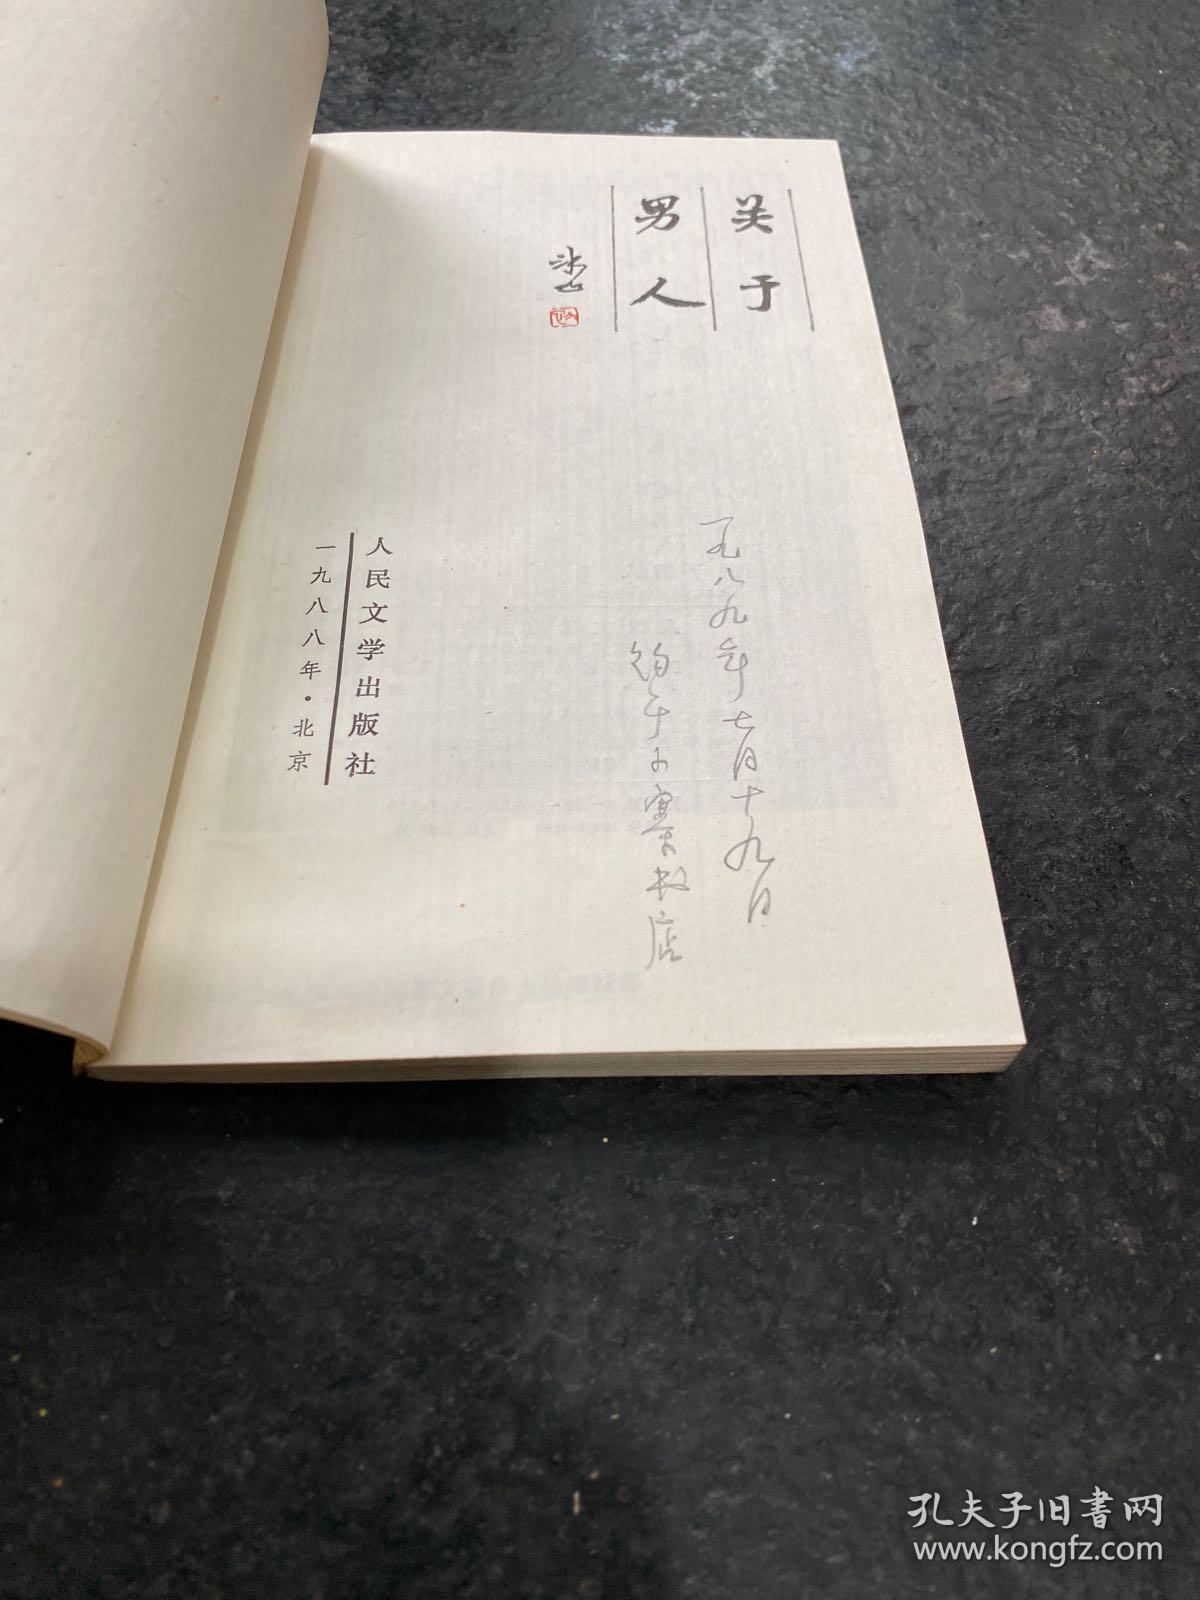 关于
男人
冰心
一九八九年七月十九日
购于小寨书店
人民文学出版社
一九八八年·北京
孔夫子旧書网
www.kongfz.com